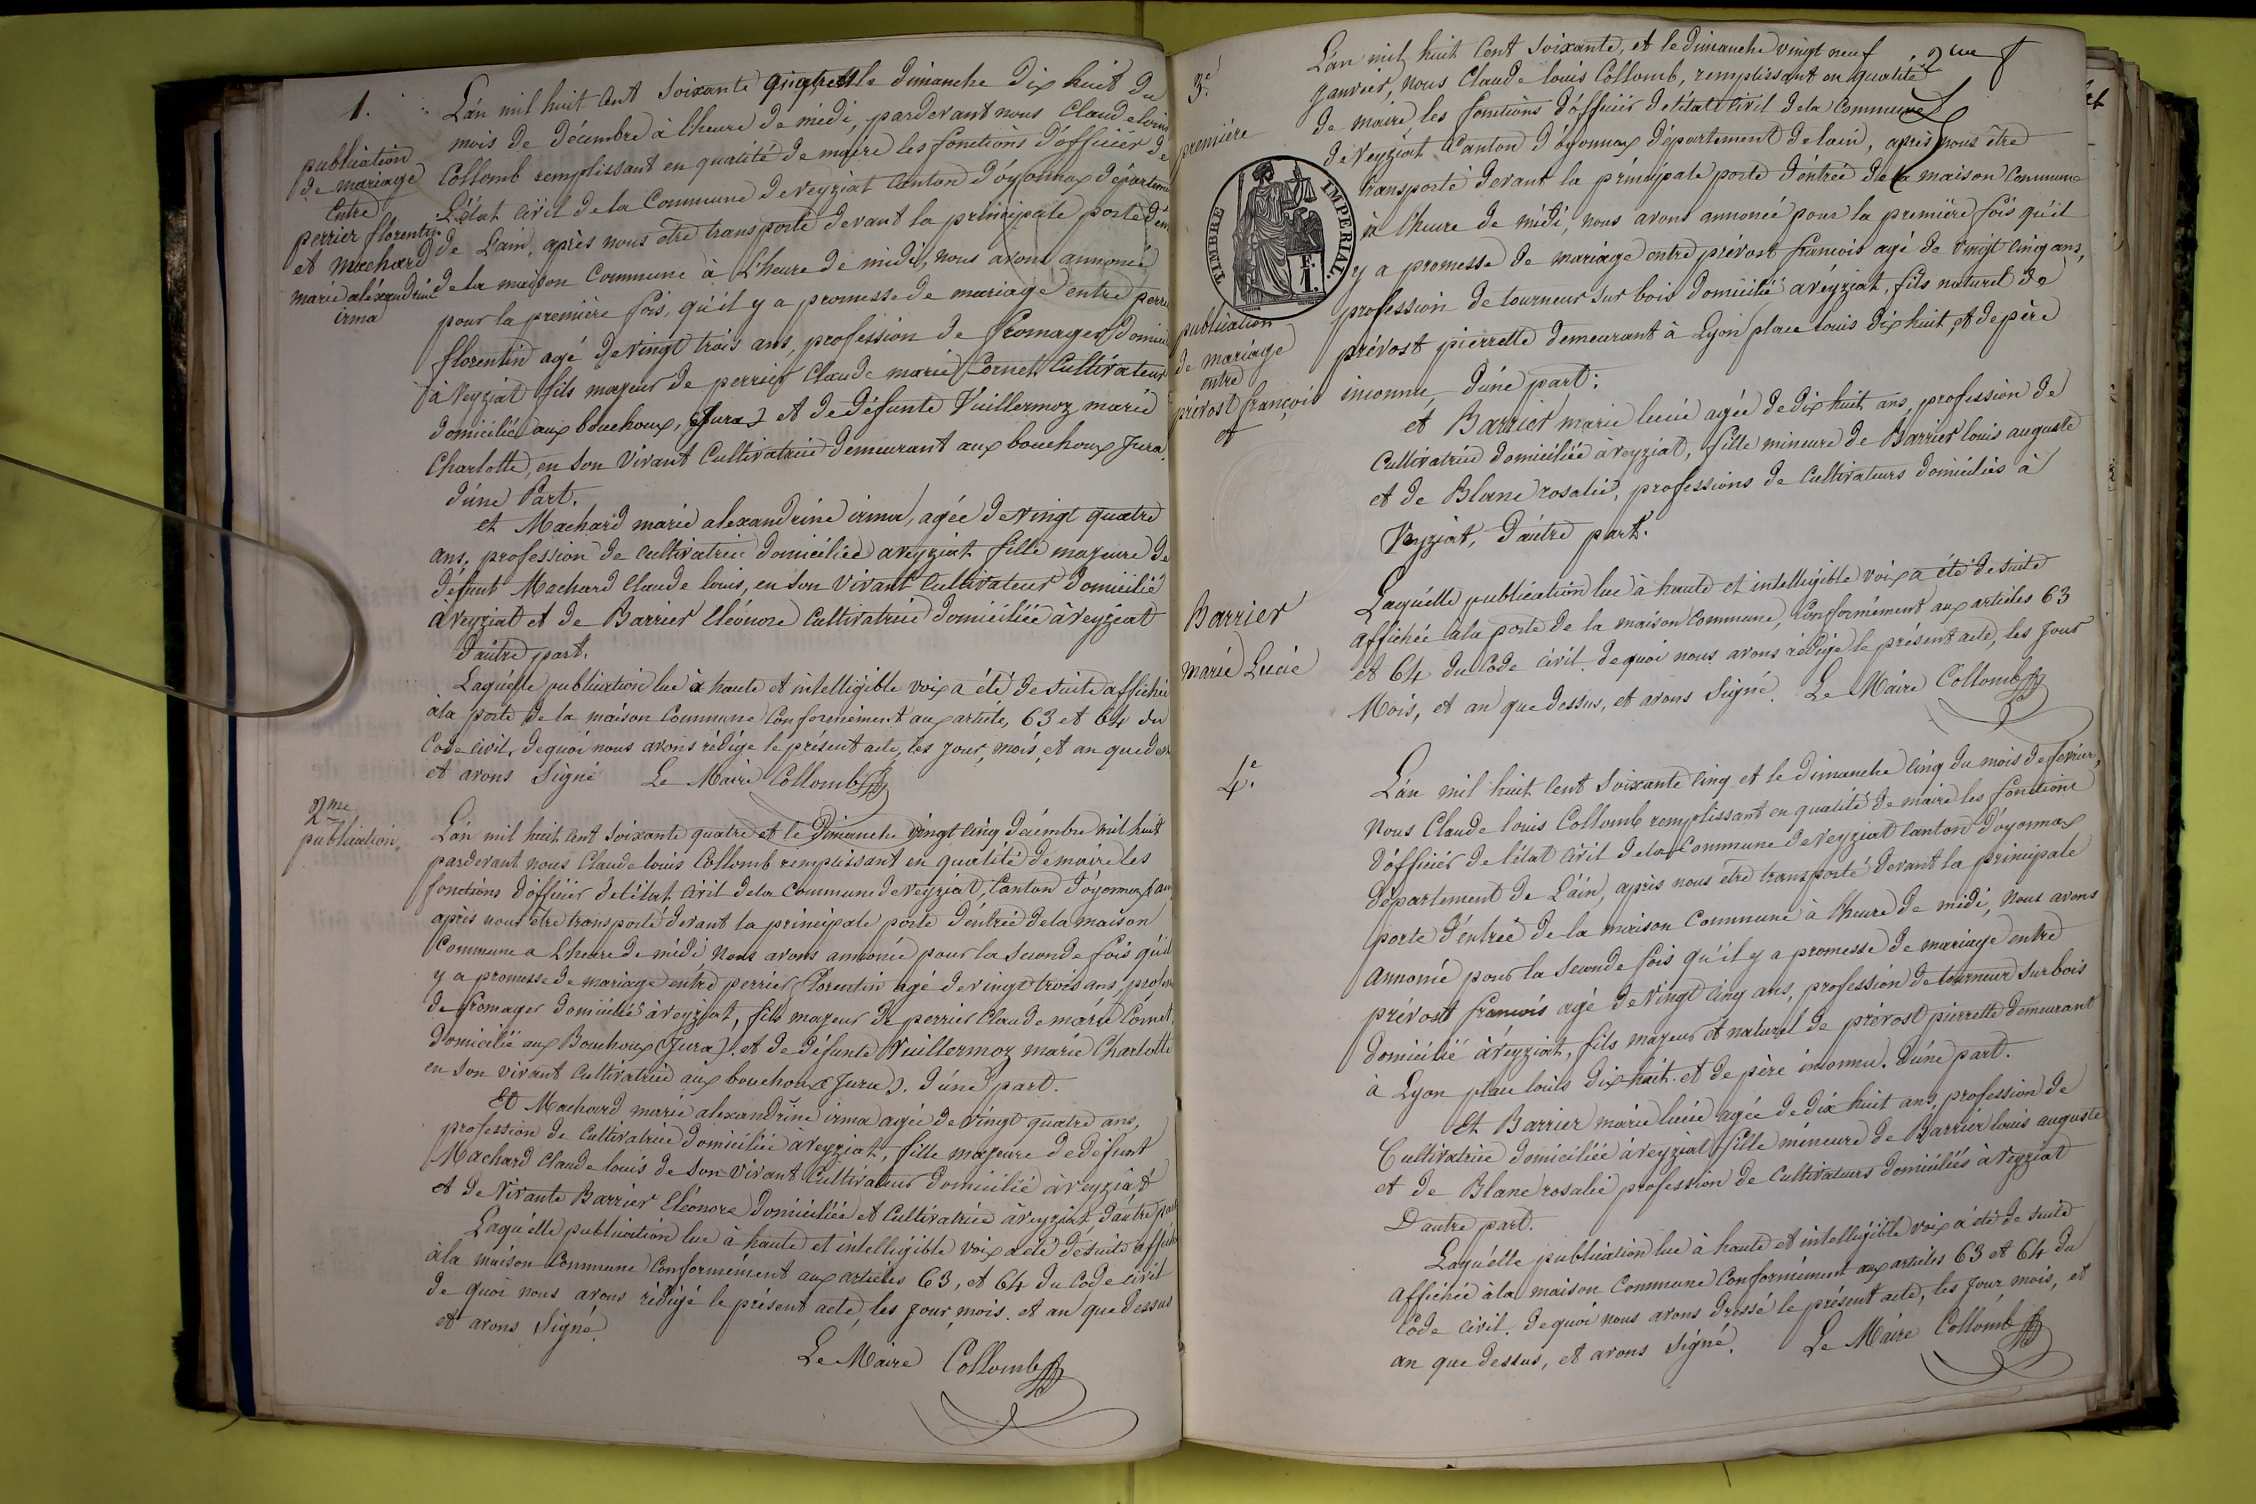 1.
publication
de mariage
Entre
perrier florentin
et Machard
marie aléxandrine
irma
L'an mil huit Cent Soixante quatre et le dimanche dix huit du
mois de décembre à l'heure de midi, pardevant nous Claude louis
Collomb remplissant en qualité de maire les fonctions d'officier de
L'état civil de la Commune de Veyziat Canton d'óyonnax départeme
de L'ain, après nous etre transporté devant la principale porte d'en
de la maison Commune à L'heure de midi, nous avons annoncé
pour la première fois, qu'il y a promesse de mariage entre perri
florentin agé de vingt trois ans, profession de fromager domici
à Veyziat fils majeur de perrier Claude marie Cornet, Cultivateur
domicilié aux bouchoux, (Jura) et de défunte Vuillermoz marie
Charlotte, en son vivant Cultivatrice demeurant aux bouchoux Jura.
d'une Part.
et Machard marie alexandrine irma, agée de vingt quatre
ans, profession de cultivatrice domiciliée a veyziat fille majeure de
défunt Machard Claude louis, en son vivant Cultivateur domicilié
à veyziat et de Barrier Eléonore Cultivatrice domiciliée à veyziat
d'autre part.
Laquelle publication lue à haute et intelligible voix a été de suite affichée
à la porte de la maison Commune Conformément aux article, 63 et 64 du
Code civil, de quoi nous avons rédigé le présent acte, les jour, mois, et an que des
et avons Signé Le Maire Collomb
2me
publication.
L'an mil huit Cent Soixante quatre et le Dimanche vingt cinq décembre mil huit
pardevant nous Claude louis Collomb remplissant en qualité de maire les
fonctions d'officier de l'état civil de la Commune de Veyziat, Canton d'óyonnax,
après nous etre transporté devant la principale porte d'entrée de la maison
Commune a L'heure de midi, Nous avons annoncé pour la seconde fois qu'il
y a promesse de mariage entre perrier Florentin agé de vingt trois ans, profes
de fromager domicilié à veyziat, fils majeur de perrier Claude marie Cornet,
domicilié aux Bouchoux (Jura). et de défunte Vuillermoz marie Charlotte
en son vivant Cultivatrice aux bouchoux (Jura). d'une part.
Et Machard marie alexandrine irma agée de vingt quatre ans,
profession de Cultivatrice domiciliée à veyziat, fille majeure de défunt
Machard Claude louis de son vivant Cultivateur domicilié à veyziat
et de Vivante Barrier Eléonore domiciliée et Cultivatrice à veyziat, d'autre part
Laquelle publication lue à haute et intelligible voix a été de suite affichée
à la maison Commune Conformément aux articles 63, et 64 du Code civil
de quoi nous avons rédigé le présent acte, les jour, mois. et an que dessus
et avons Signé.
Le Maire Collomb
2me
3e.
première
TIMBRE IMPERIAL.
1 F.
publication
de mariage
entre
prévost françois
et
Barrier
marie Lucie
L'an mil huit Cent Soixante, et le dimanche vingt neuf
janvier, nous Claude louis Collomb, remplissant en qualité
de maire les fonctions d'officier de l'état civil de la Commune
de Veyziat Canton d'óyonnax département de l'ain, après nous être
transporté devant la principale porte d'entrée de la maison Commune
à l'heure de midi, nous avons annoncé pour la première fois qu'il
y a promesse de mariage entre prévost francois agé de vingt cinq ans,
profession de tourneur sur bois domicilié à veyziat, fils naturel de
prévost pierrette demeurant à Lyon place louis dix huit, et de père
inconnu, d'une part;
et Barrier marie lucie agée de dix huit ans, profession de
Cultivatrice domiciliée à veyziat, fille mineure de Barrier louis auguste
et de Blanc rosalie, professions de Cultivateurs domiciliés à
Veyziat, d'autre part.
Laquelle publication lue à haute et intelligible voix a été de suite
affichée à la porte de la maison Commune, Conformément aux articles 63
et 64 du Code civil. de quoi nous avons rédigé le présent acte, les jour
Mois, et an que dessus, et avons Signé. Le Maire Collomb
4e.
L'an mil huit Cent Soixante Cinq et le dimanche Cinq du mois de février,
Nous Claude louis Collomb remplissant en qualité de maire les fonctions
d'officier de l'état civil de la Commune de Veyziat Canton d'óyonnax
département de L'ain, après nous etre transporté devant la principale
porte d'entrée de la maison Commune à l'heure de midi, Nous avons
annoncé pour la Seconde fois qu'il y a promesse de mariage entre
prévost francois agé de vingt Cinq ans, profession de tourneur sur bois
domicilié à veyziat, fils majeur et naturel de prévost pierrette demeurant
à Lyon place louis dix huit. et de père inconnu. d'une part.
Et Barrier marie lucie agée de dix huit ans, profession de
Cultivatrice domiciliée à veyziat fille mineure de Barrier louis auguste
et de Blanc rosalie profession de Cultivateurs domiciliés à veyziat
D'autre part.
Laquelle publication lue à haute et intelligible voix a été de suite
affichée à la maison Commune Conformément aux articles 63 et 64 du
Code civil. de quoi nous avons dressé le présent acte, les jour, mois, et
an que dessus, et avons signé. Le Maire Collomb